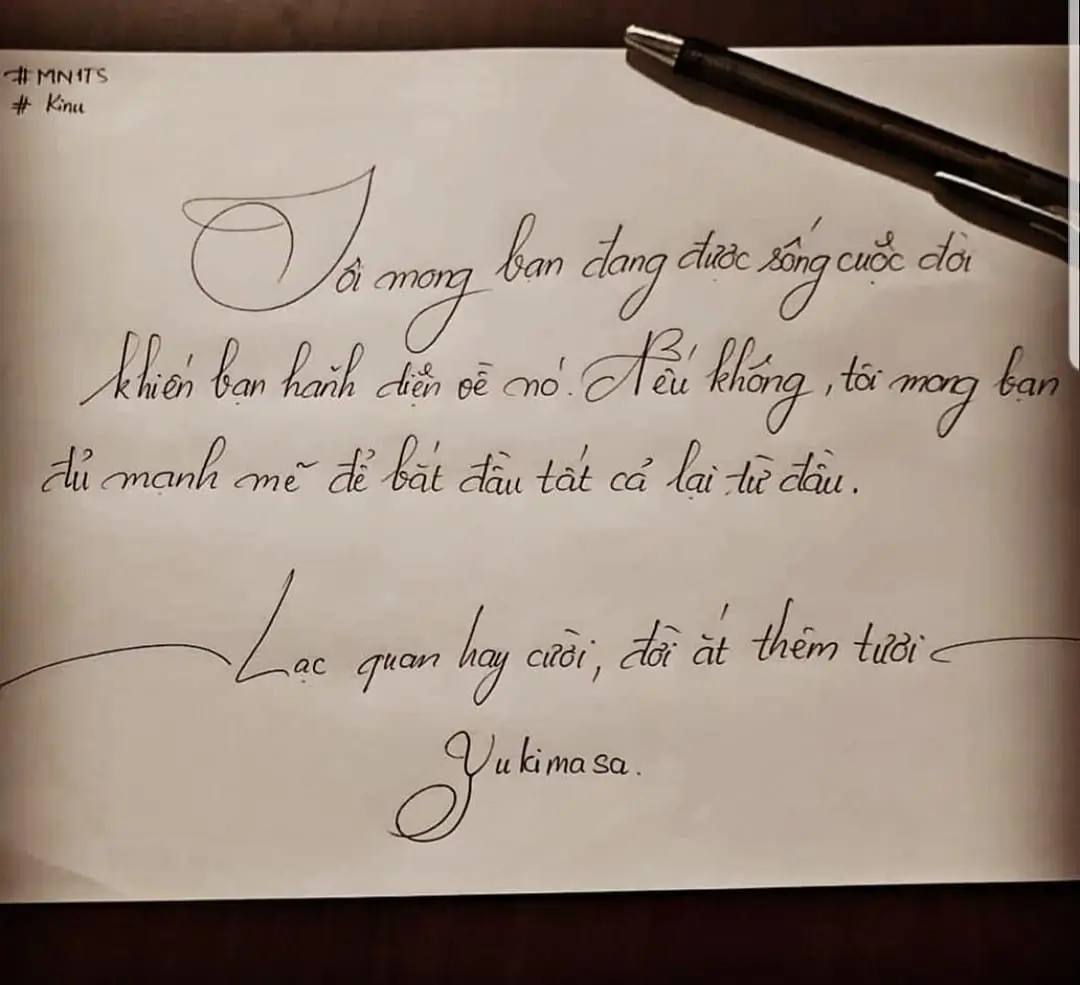 #MN1TS
# Kinu
Tôi mong bạn đang được sống cuộc đời
khiến bạn hãnh diện về nó. Nếu không, tôi mong bạn
đủ mạnh mẽ để bắt đầu tất cả lại từ đầu.
Lạc quan hay cười, đời ắt thêm tươi
Yukimasa.